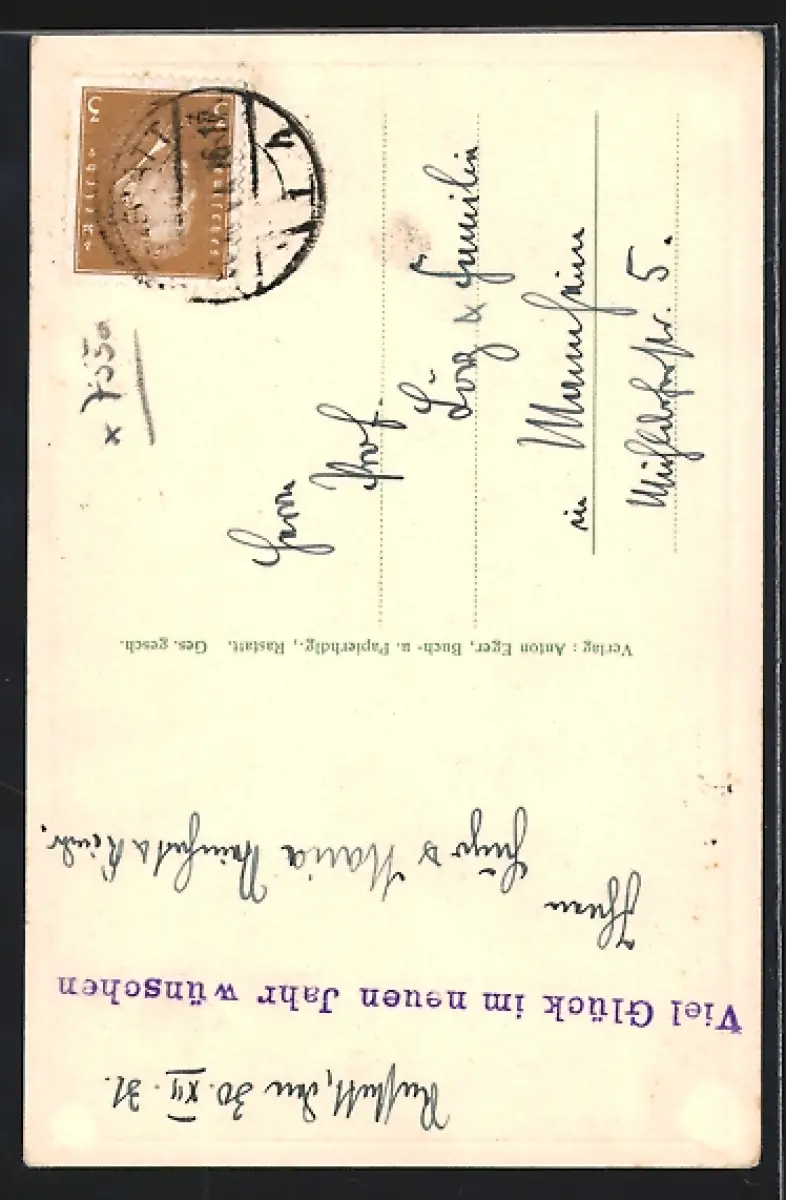 Rastatt, den 30. XII. 31.
Viel Glück im neuen Jahr wünschen
Ihnen
Hugo & Maria & Kinder.
Verlag: Anton Eger, Buch- u. Papierhdlg., Rastatt. Ges. gesch.
x 7550
Herrn
Prof.
Lörz & Familie
in Mannheim
5.